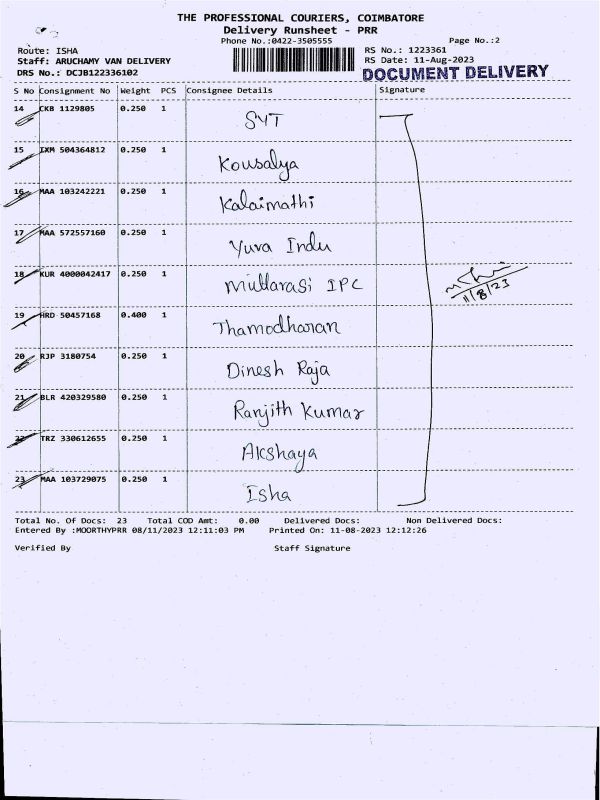 THE PROFESSIONAL COURIERS, COIMBATORE
Delivery Runsheet - PRR
Phone No.:0422-3505555 Page No.:2
Route: ISHA RS No.: 1223361
Staff: ARUCHAMY VAN DELIVERY RS Date: 11-Aug-2023
DRS No.: DCJB122336102 DOCUMENT DELIVERY
S No Consignment No Weight PCS Consignee Details Signature
14 CKB 1129805 0.250 1 SYT
15 IXM 504364812 0.250 1 Kousalya
16 MAA 103242221 0.250 1 Kalaimathi
17 MAA 572557160 0.250 1 Yuva Indu
18 KUR 4000042417 0.250 1 Mullarasi IPC
11/8/23
19 HRD 50457168 0.400 1 Thamodharan
20 RJP 3180754 0.250 1 Dinesh Raja
21 BLR 420329580 0.250 1 Ranjith Kumar
22 TRZ 330612655 0.250 1 Akshaya
23 MAA 103729075 0.250 1 Isha
Total No. Of Docs: 23 Total COD Amt: 0.00 Delivered Docs: Non Delivered Docs:
Entered By :MOORTHYPRR 08/11/2023 12:11:03 PM Printed On: 11-08-2023 12:12:26
Verified By Staff Signature